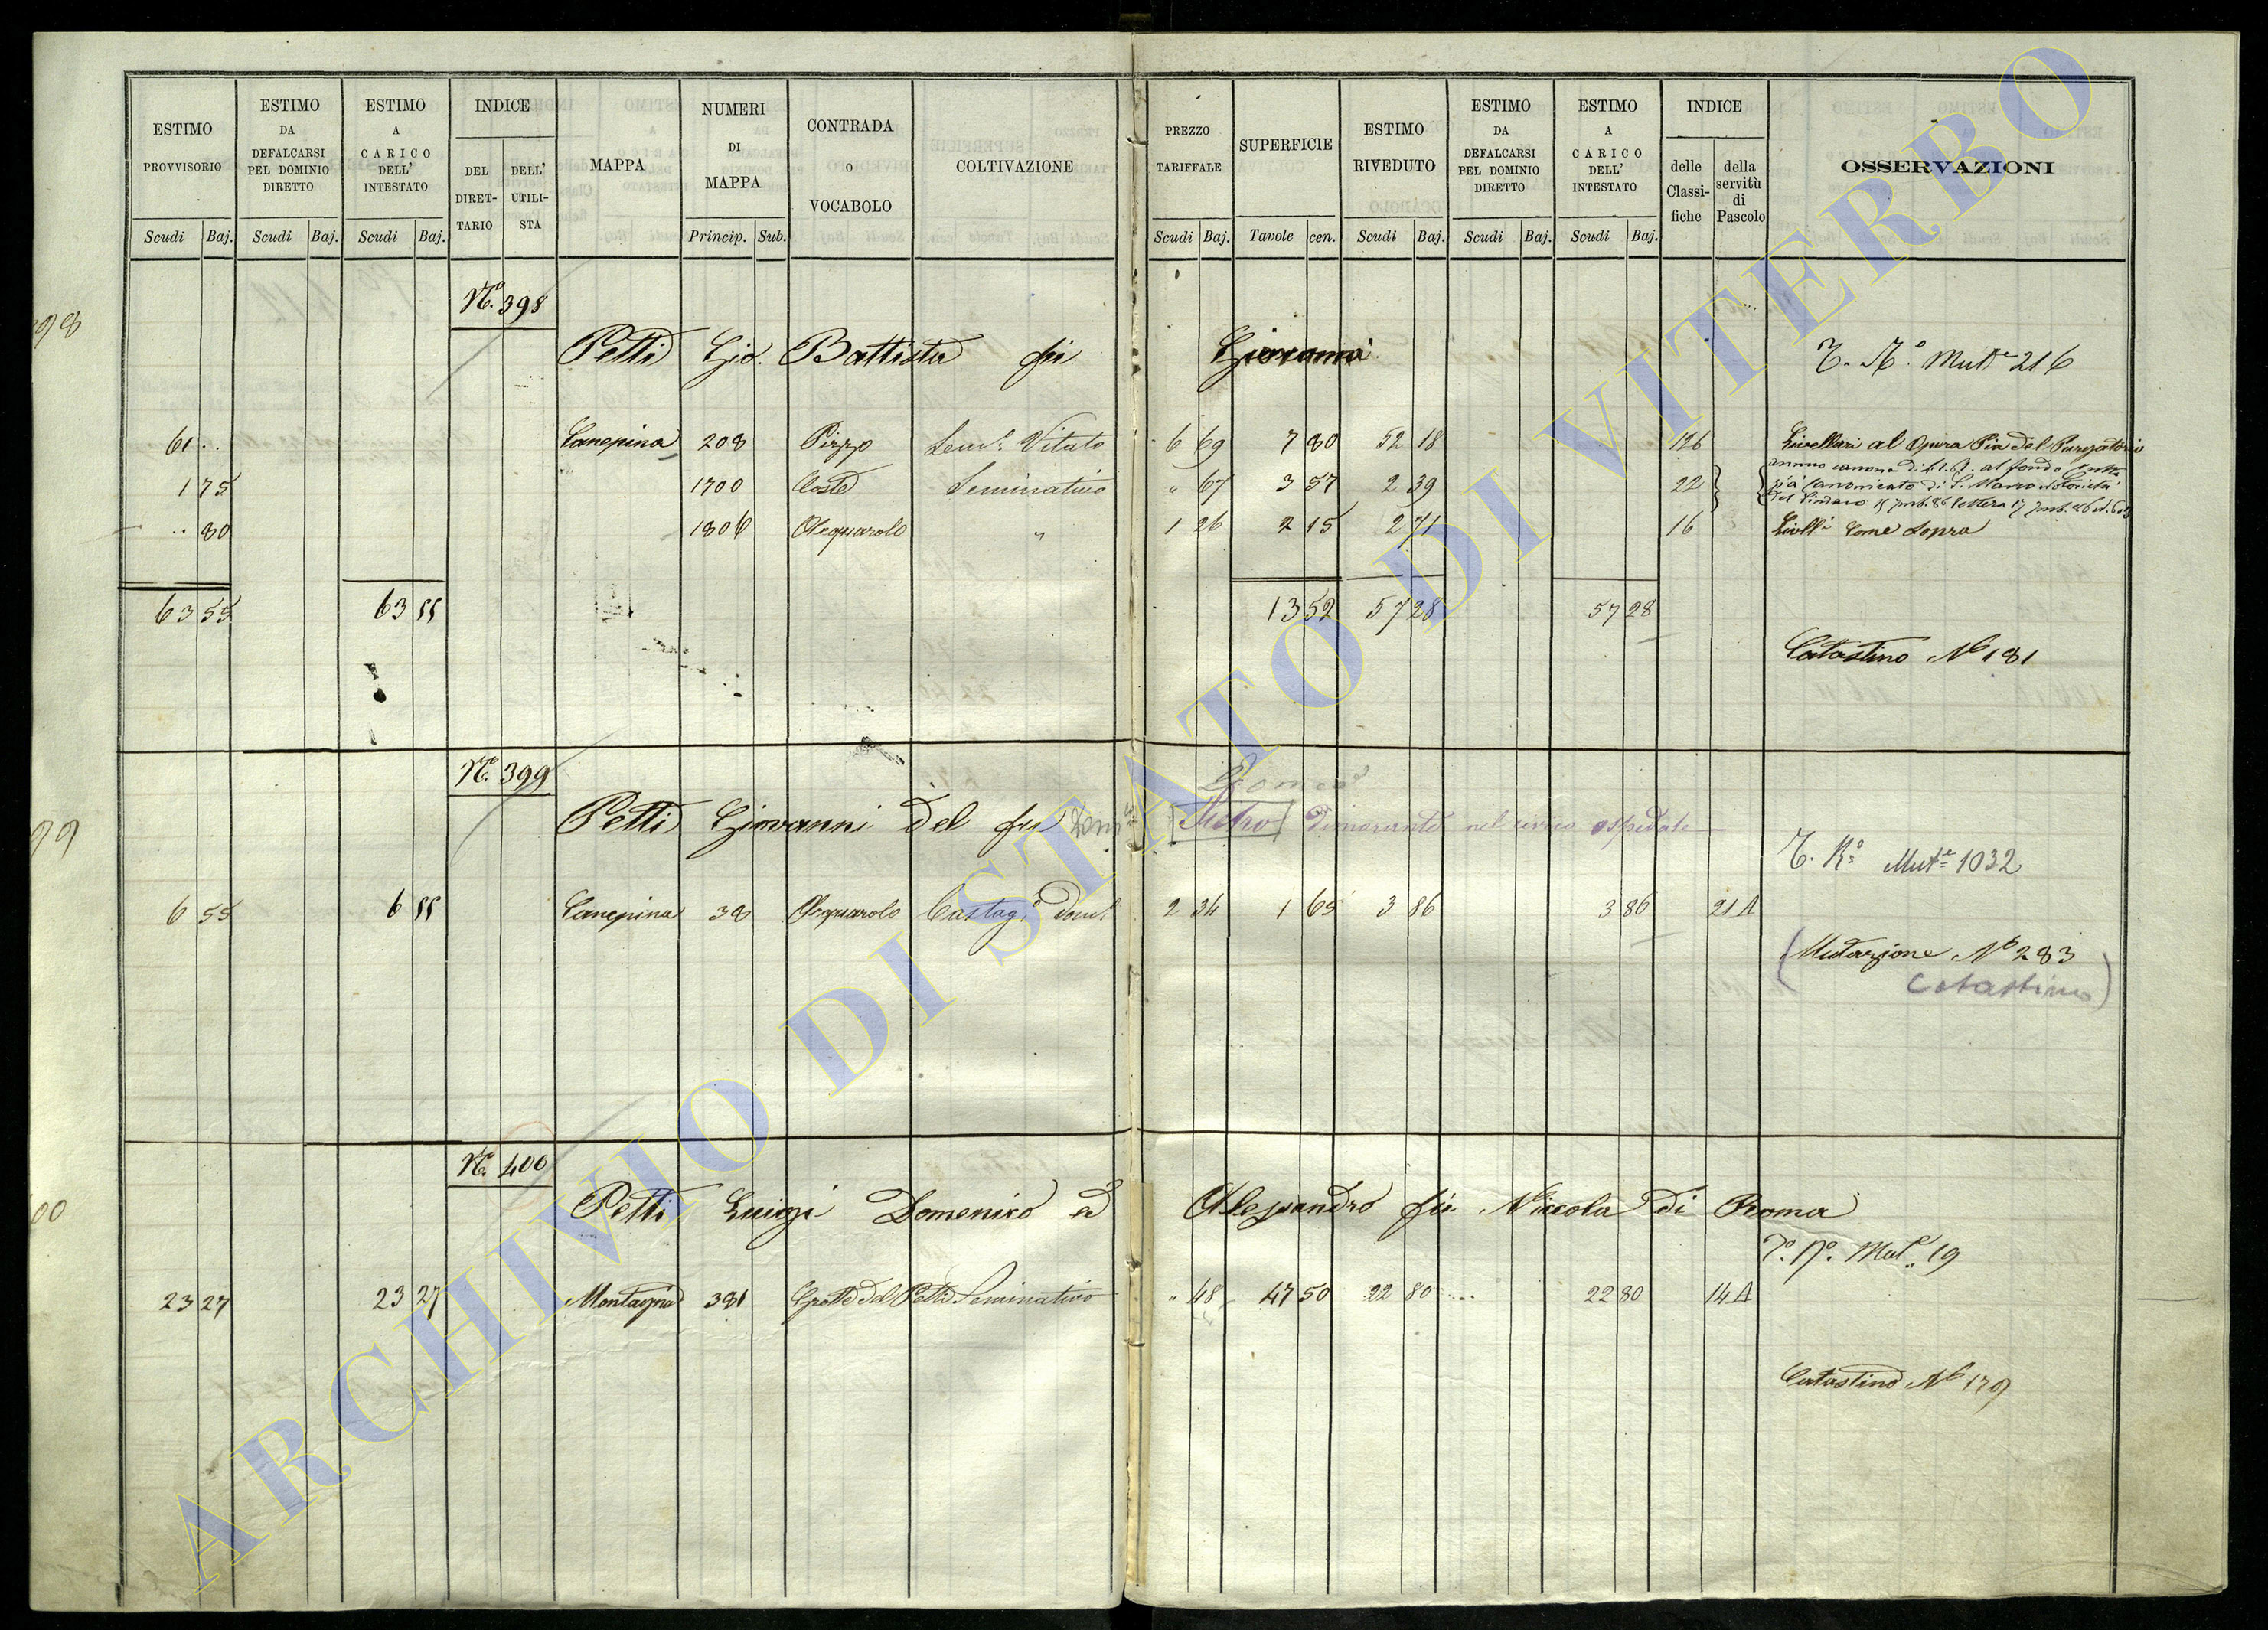 ESTIMO PROVVISORIO
Scudi Baj.
ESTIMO DA DEFALCARSI PEL DOMINIO DIRETTO
Scudi Baj.
ESTIMO A CARICO DELL' INTESTATO
Scudi Baj.
INDICE
DEL DIRET-TARIO
DELL' UTILI-STA
MAPPA
NUMERI DI MAPPA
Princip. Sub.
CONTRADA o VOCABOLO
COLTIVAZIONE
PREZZO TARIFFALE
Scudi Baj.
SUPERFICIE
Tavole cen.
ESTIMO RIVEDUTO
Scudi Baj.
ESTIMO DA DEFALCARSI PEL DOMINIO DIRETTO
Scudi Baj.
ESTIMO A CARICO DELL' INTESTATO
Scudi Baj.
INDICE
delle Classi-fiche
della servitù di Pascolo
OSSERVAZIONI
N.° 398
Petti Gio. Battista fu Giovanni
Mut.e 216
61 .. Canepina 208 Pizzo Sem.o Vitato 6 69 7 80 52 18 126 Livellari al Opera Pia del Purgatorio
1 75 1700 Coste Seminativo " 67 3 57 2 39 22
annuo canone di
.. 80 1806 Acquarolo " 1 26 2 15 2 71 16 Livell.i Come Sopra
63 55 63 55 13 52 57 28 57 28
Catastino N° 181
N.° 399
Petti Giovanni del fu Pietro Dimorante nel civico ospedale
Mut.e 1032
6 55 6 55 Canepina 38 Acquarolo Castag.o Dom.o 2 34 1 65 3 86 3 86 21 A
(Mutazione N° 283
Catastino)
N.° 400
Petti Luigi Domenico ed Alessandro fu Niccola di Roma
Mut.e 19
23 27 23 27 Montagna 381 Seminativo " 48 47 50 22 80 ... 22 80 14 A
Catastino N° 179
ARCHIVIO DI STATO DI VITERBO